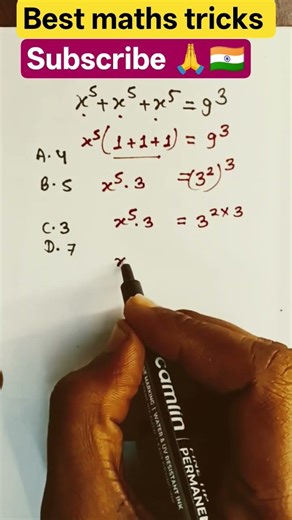 Best maths tricks
Subscribe 🙏🇮🇳
x⁵+x⁵+x⁵=9³
x⁵(1+1+1)=9³
A. 4
B. 5 x⁵·3 =(3²)³
C. 3 x⁵·3 = 3²ˣ³
D. 7
x
camlin
PERMANE
MARKING | WATER & UV RESISTANT INK